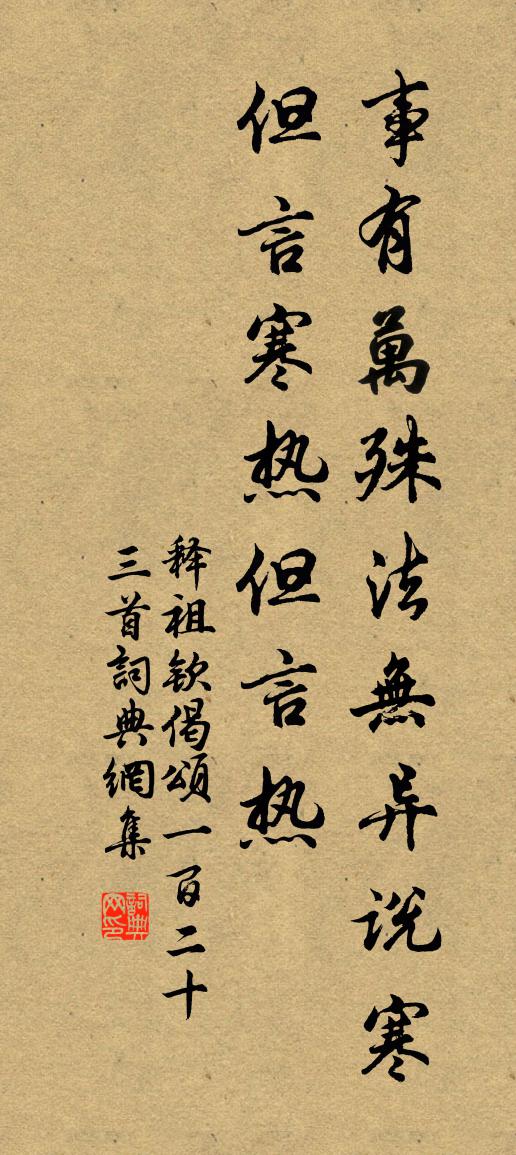 事有萬殊法無异说寒
但言寒热但言热
释祖钦偈頌一百二十
三首詞典網集
詞典网印